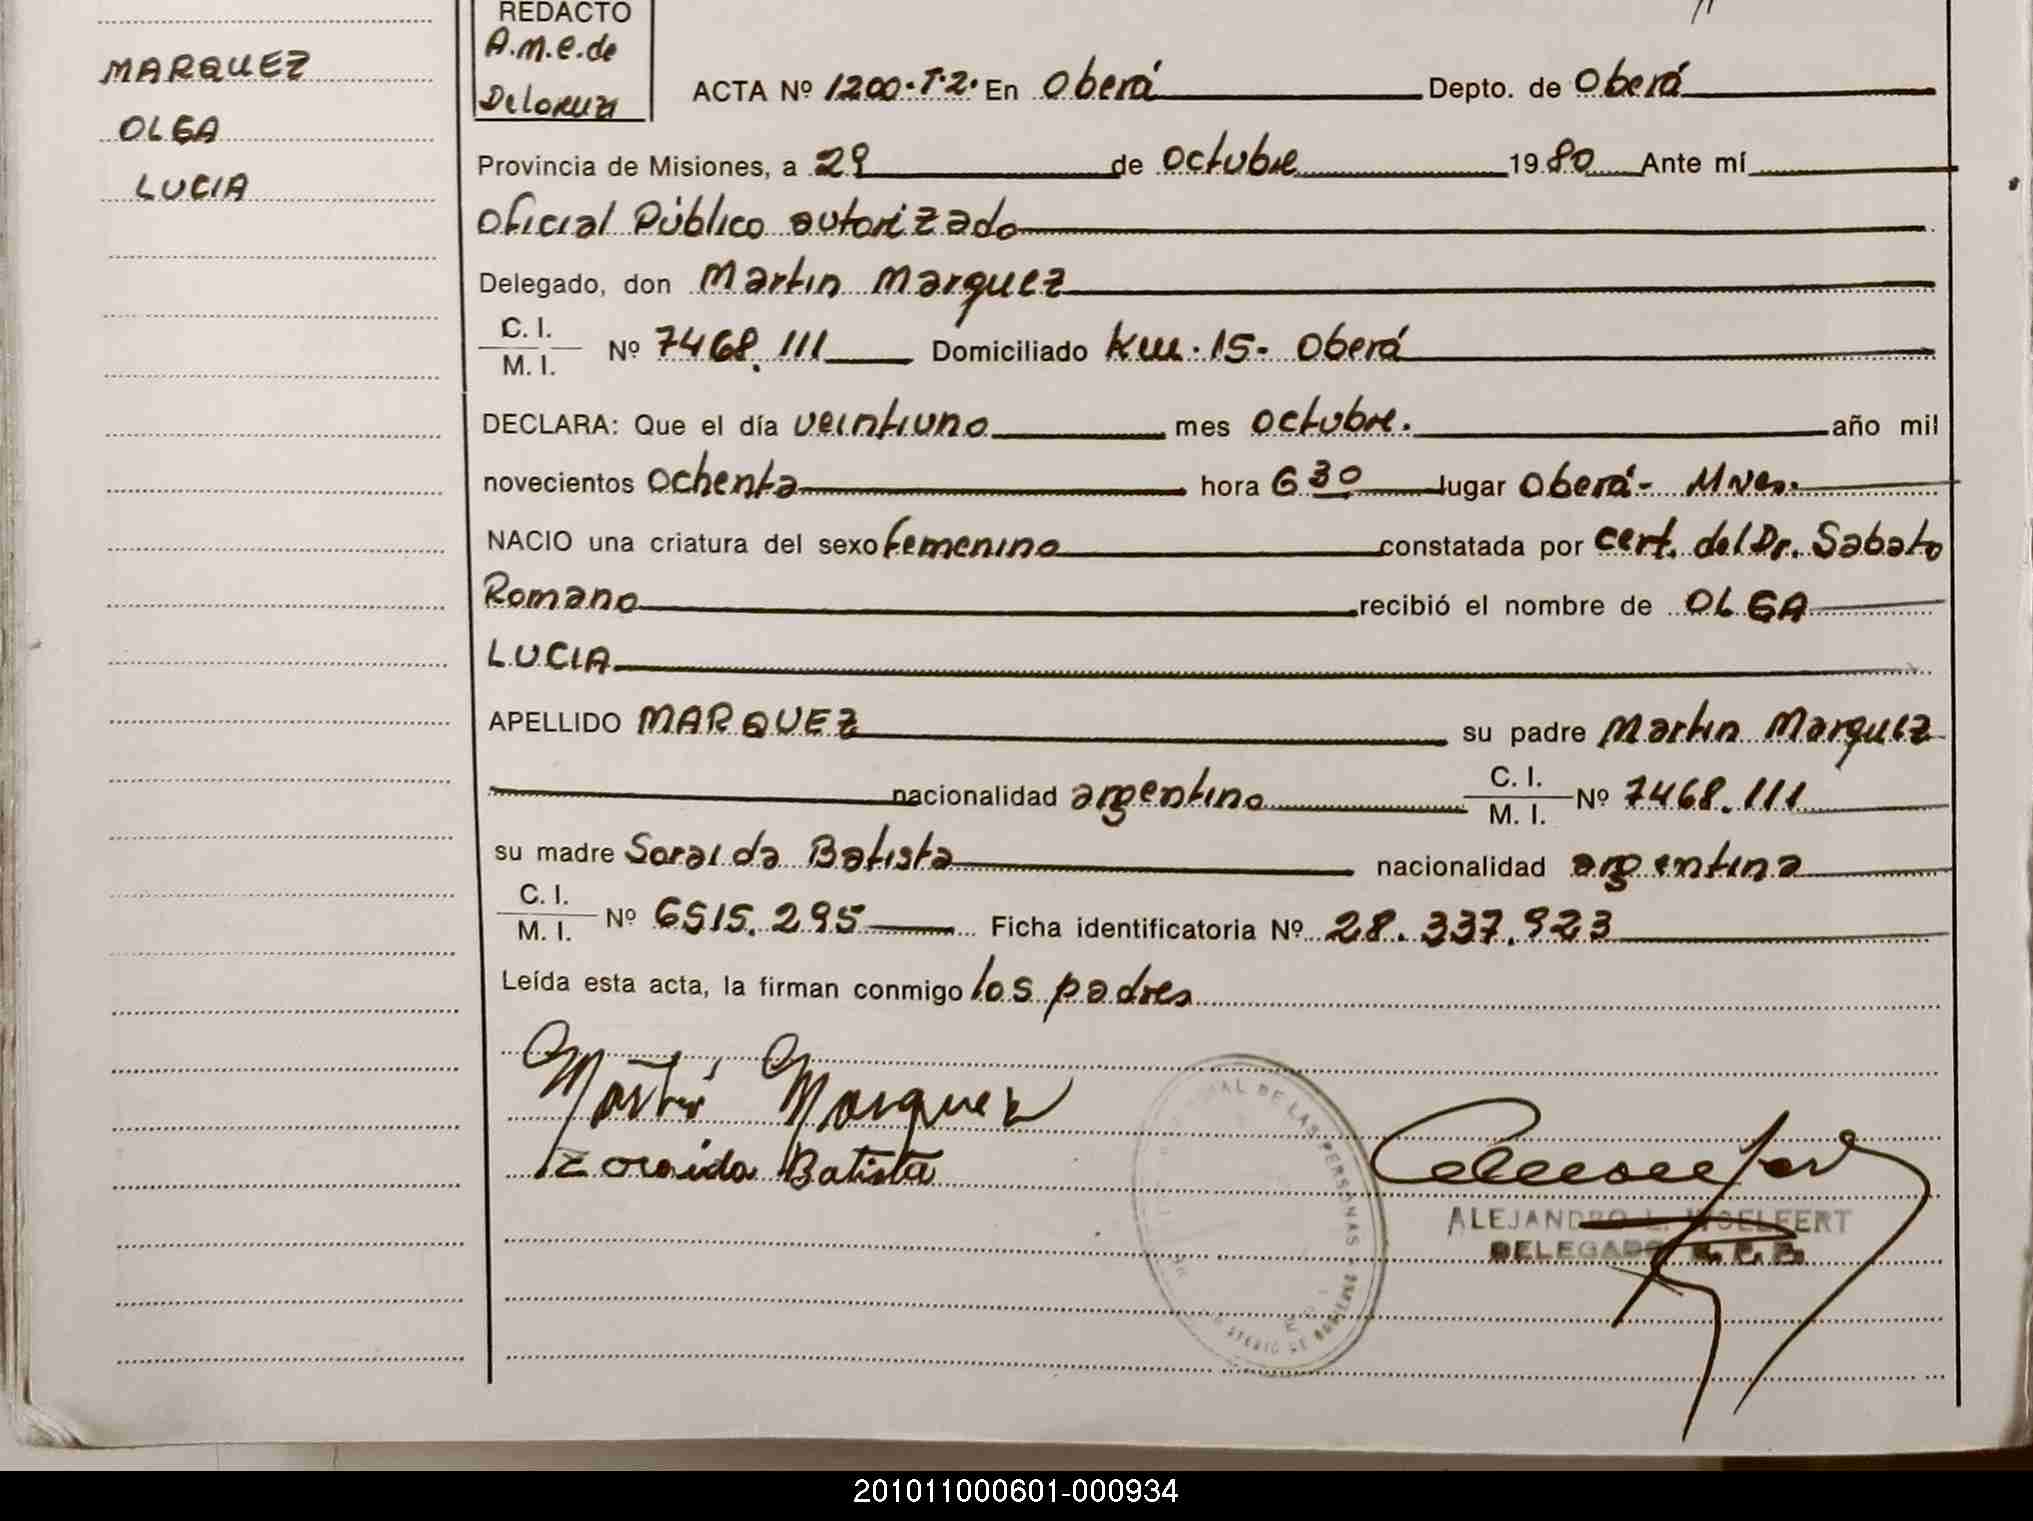 MARQUEZ
OLGA
LUCIA
REDACTO
A.M.E. de
Delorenzi
ACTA Nº 1200.T.2. En Oberá Depto. de Oberá
Provincia de Misiones, a 29 de octubre 1980 Ante mí
Oficial Público autorizado
Delegado, don Martin Marquez
C. I.
M. I. Nº 7468.111 Domiciliado Km. 15- Oberá
DECLARA: Que el día veintiuno mes octubre. año mil
novecientos ochenta hora 6 30 lugar Oberá- Mnes.
NACIO una criatura del sexo femenino constatada por cert. del Dr. Sabato
Romano recibió el nombre de OLGA
LUCIA
APELLIDO MARQUEZ su padre Martin Marquez
nacionalidad argentino C. I. M. I. Nº 7468.111
su madre Soraida Batista nacionalidad argentina
C. I.
M. I. Nº 6515.295 Ficha identificatoria Nº 28.337.923
Leída esta acta, la firman conmigo los padres
Martin Marquez
Zoraida Batista
DE LAS PERSONAS
ALEJANDRO L. WOELFERT
DELEGADO
201011000601-000934